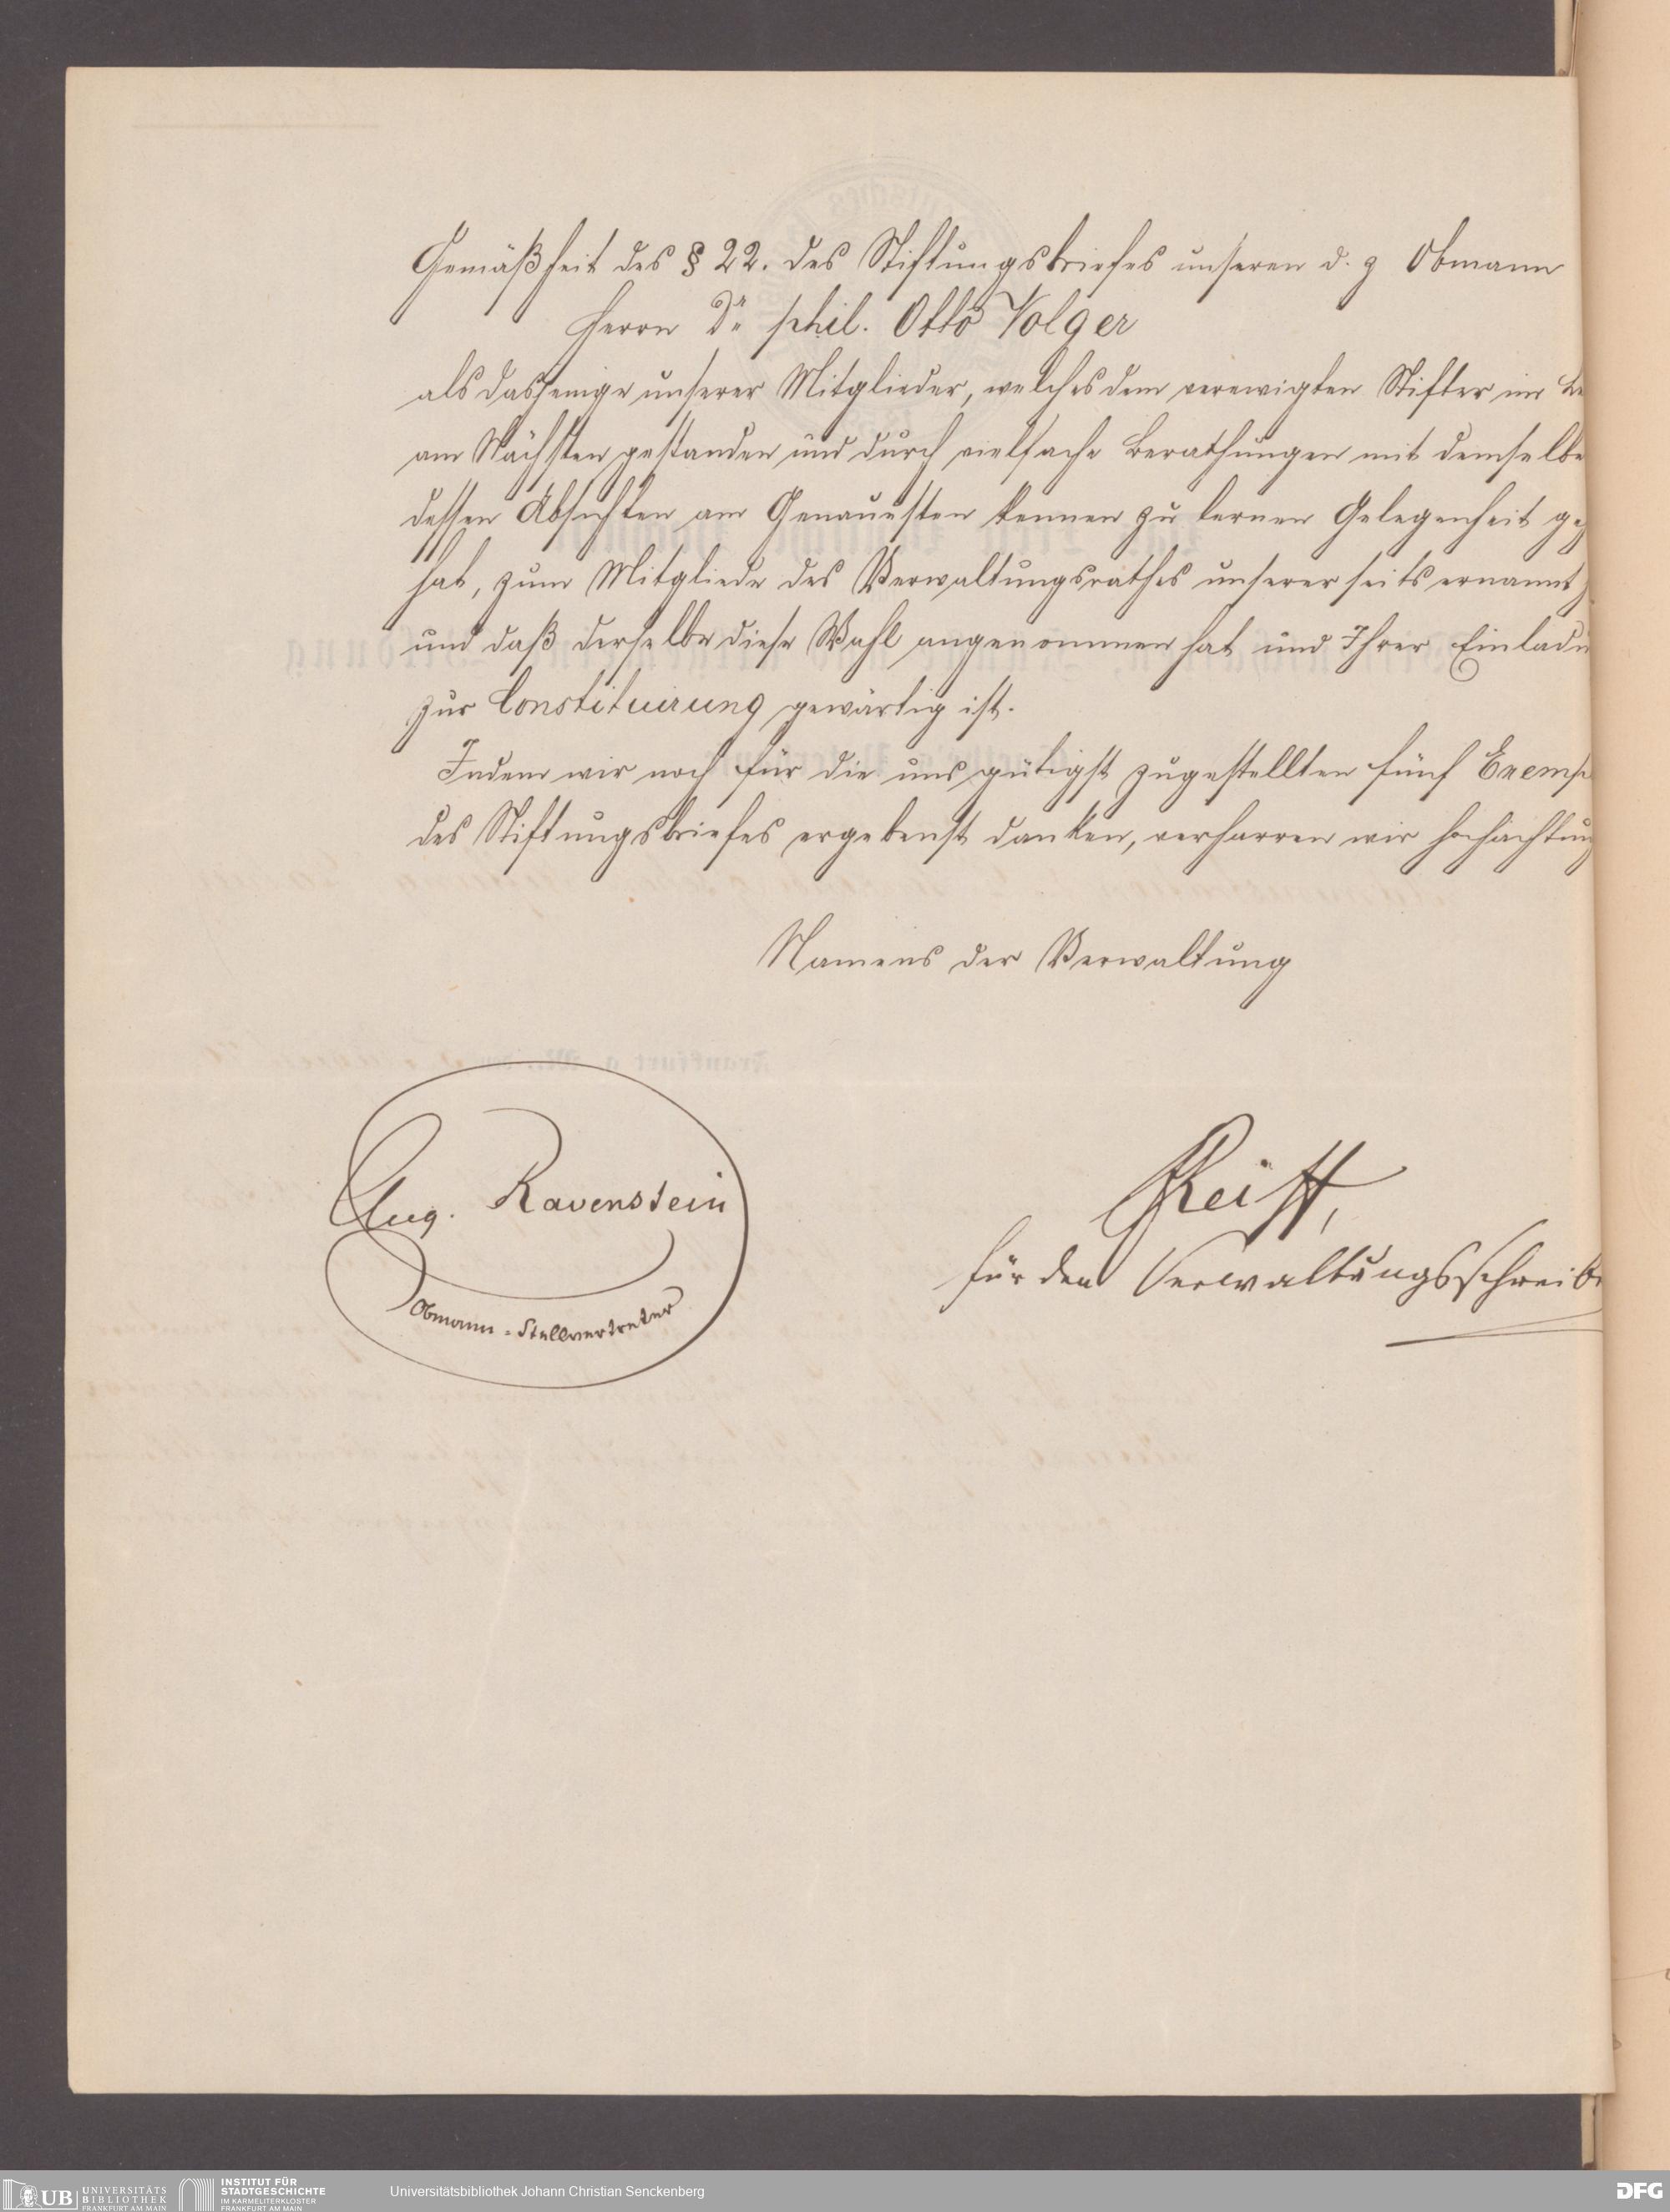 Gemäßheit des § 22. des Stiftungsbriefes unseren d. z Obmann
Herrn Dr phil. Otto Volger
als dasjenige unserer Mitglieder, welches dem verewigten Stifter im Le
am Nächsten gestanden und durch vielfache Berathungen mit demselbe
dessen Absichten am Genauesten kennen zu lernen Gelegenheit ge
hat, zum Mitgliede des Verwaltungsrathes unserer seits ernannt
und daß derselbe diese Wahl angenommen hat und Ihrer Einladu
zur Constituirung gewärtig ist.
Indem wir noch für die uns gütigst zugestellten fünf Exemp
des Stiftungsbriefes ergebenst danken, verharren wir hochachtung
Namens der Verwaltung
Aug. Ravenstein
Obmann-Stellvertreter
Reiff,
für den Verwaltungsschreibe
UB UNIVERSITÄTS
BIBLIOTHEK
FRANKFURT AM MAIN
INSTITUT FÜR
STADTGESCHICHTE
IM KARMELITERKLOSTER
FRANKFURT AM MAIN
Universitätsbibliothek Johann Christian Senckenberg
DFG